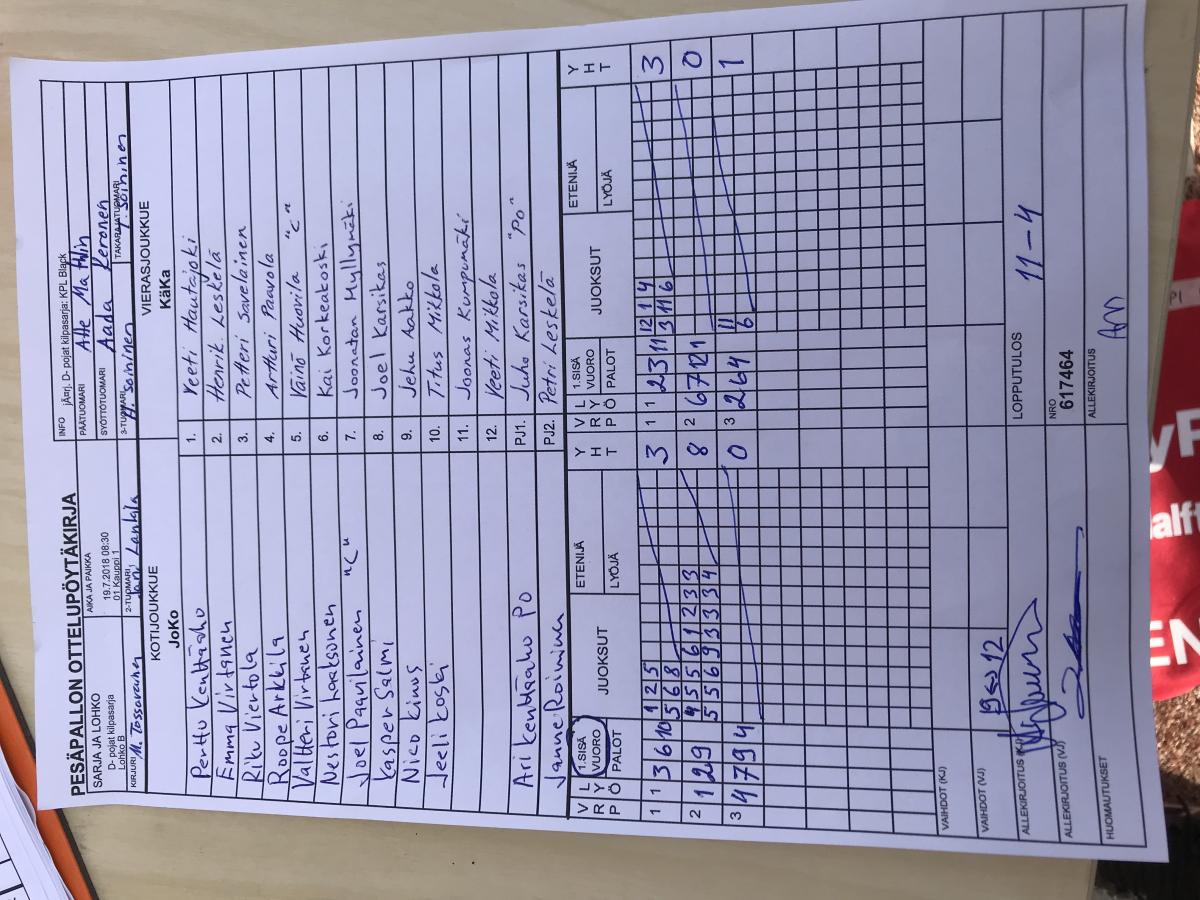 PESÄPALLON OTTELUPÖYTÄKIRJA
SARJA JA LOHKO
D- pojat kilpasarja
Lohko B
AIKA JA PAIKKA
19.7.2018 08:30
01 Kauppi 1
INFO jÄ¤rj, D- pojat kilpasarja: KPL Black
PÄÄTUOMARI Atte Mathlin
SYÖTTÖTUOMARI Aada Keronen
KIRJURI M. Tossavainen
2-TUOMARI Jani Lankila
3-TUOMARI H. Soininen
TAKARAJATUOMARI T. Soininen
KOTIJOUKKUE
JoKo
VIERASJOUKKUE
KäKa
Perttu Kenttäaho 1. Veeti Hautajoki
Emma Virtanen 2. Henrik Leskelä
Riku Viertola 3. Petteri Savelainen
Roope Arkkila 4. Artturi Paavola
Valtteri Virtanen 5. Väinö Huovila "C"
Nestori Laaksonen 6. Kai Korkeakoski
Joel Paavilainen "C" 7. Joonatan Myllymäki
Kasper Salmi 8. Joel Karsikas
Nico Kinus 9. Jehu Aakko
Jeeli Koski 10. Titus Mikkola
11. Joonas Kumpumäki
12. Veeti Mikkola
Ari Kenttäaho PO PJ1. Juho Karsikas "PO"
Janne Roininen PJ2. Petri Leskelä
V R P L Y Ö 1.SISÄ VUORO PALOT JUOKSUT ETENIJÄ LYÖJÄ Y H T
V R P L Y Ö 1.SISÄ VUORO PALOT JUOKSUT ETENIJÄ LYÖJÄ Y H T
1 1 3 6 10 1 2 5 3
5 6 8
1 1 2 3 11 12 1 4 3
3 11 6
2 1 2 9 4 5 5 6 1 2 3 3 8
5 5 6 9 3 3 3 4
2 6 7 12 1 0
3 4 7 9 4 0
3 2 6 4 11 1
6
VAIHDOT (KJ)
VAIHDOT (VJ)
ALLEKIRJOITUS (KJ)
ALLEKIRJOITUS (VJ)
HUOMAUTUKSET
LOPPUTULOS 11-4
NRO
617464
ALLEKIRJOITUS